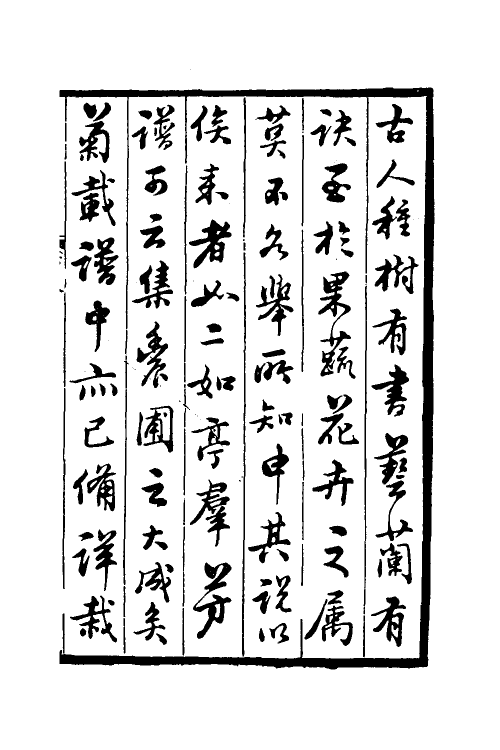 古人種樹有書藝蘭有
訣至於果蔬花卉之屬
莫不各舉所知申其說以
俟來者如二如亭羣芳
譜可云集農圃之大成矣
菊載譜中亦已備詳栽